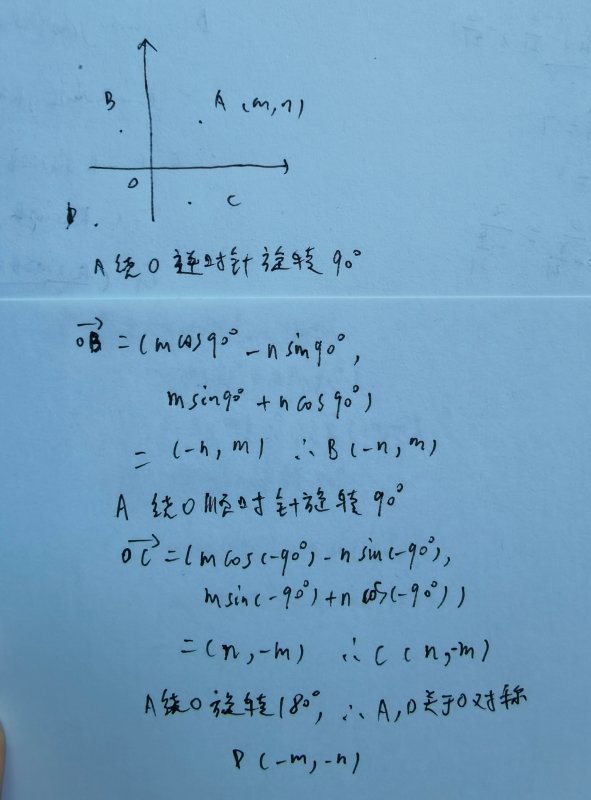 B A (m,n)
O C
D
A绕O逆时针旋转90°
→OB = (m cos90° - n sin90°,
m sin90° + n cos90°)
= (-n, m) ∴ B (-n, m)
A 绕O顺时针旋转90°
→OC = (m cos(-90°) - n sin(-90°),
m sin(-90°) + n cos(-90°))
= (n, -m) ∴ C (n, -m)
A绕O旋转180°, ∴ A,D关于O对称
D (-m, -n)